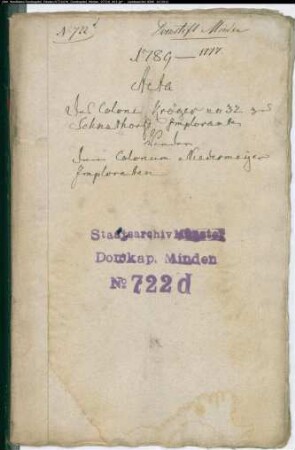 No 722d
Domstift Minden
1789 — 1797
Acta
Des Coloni Kröger no 32 zu
Schnathorst Imploranten
Wieder
den Colonum Niedermeyer
Imploraten
Staatsarchiv Münster
Domkap. Minden
No 722d